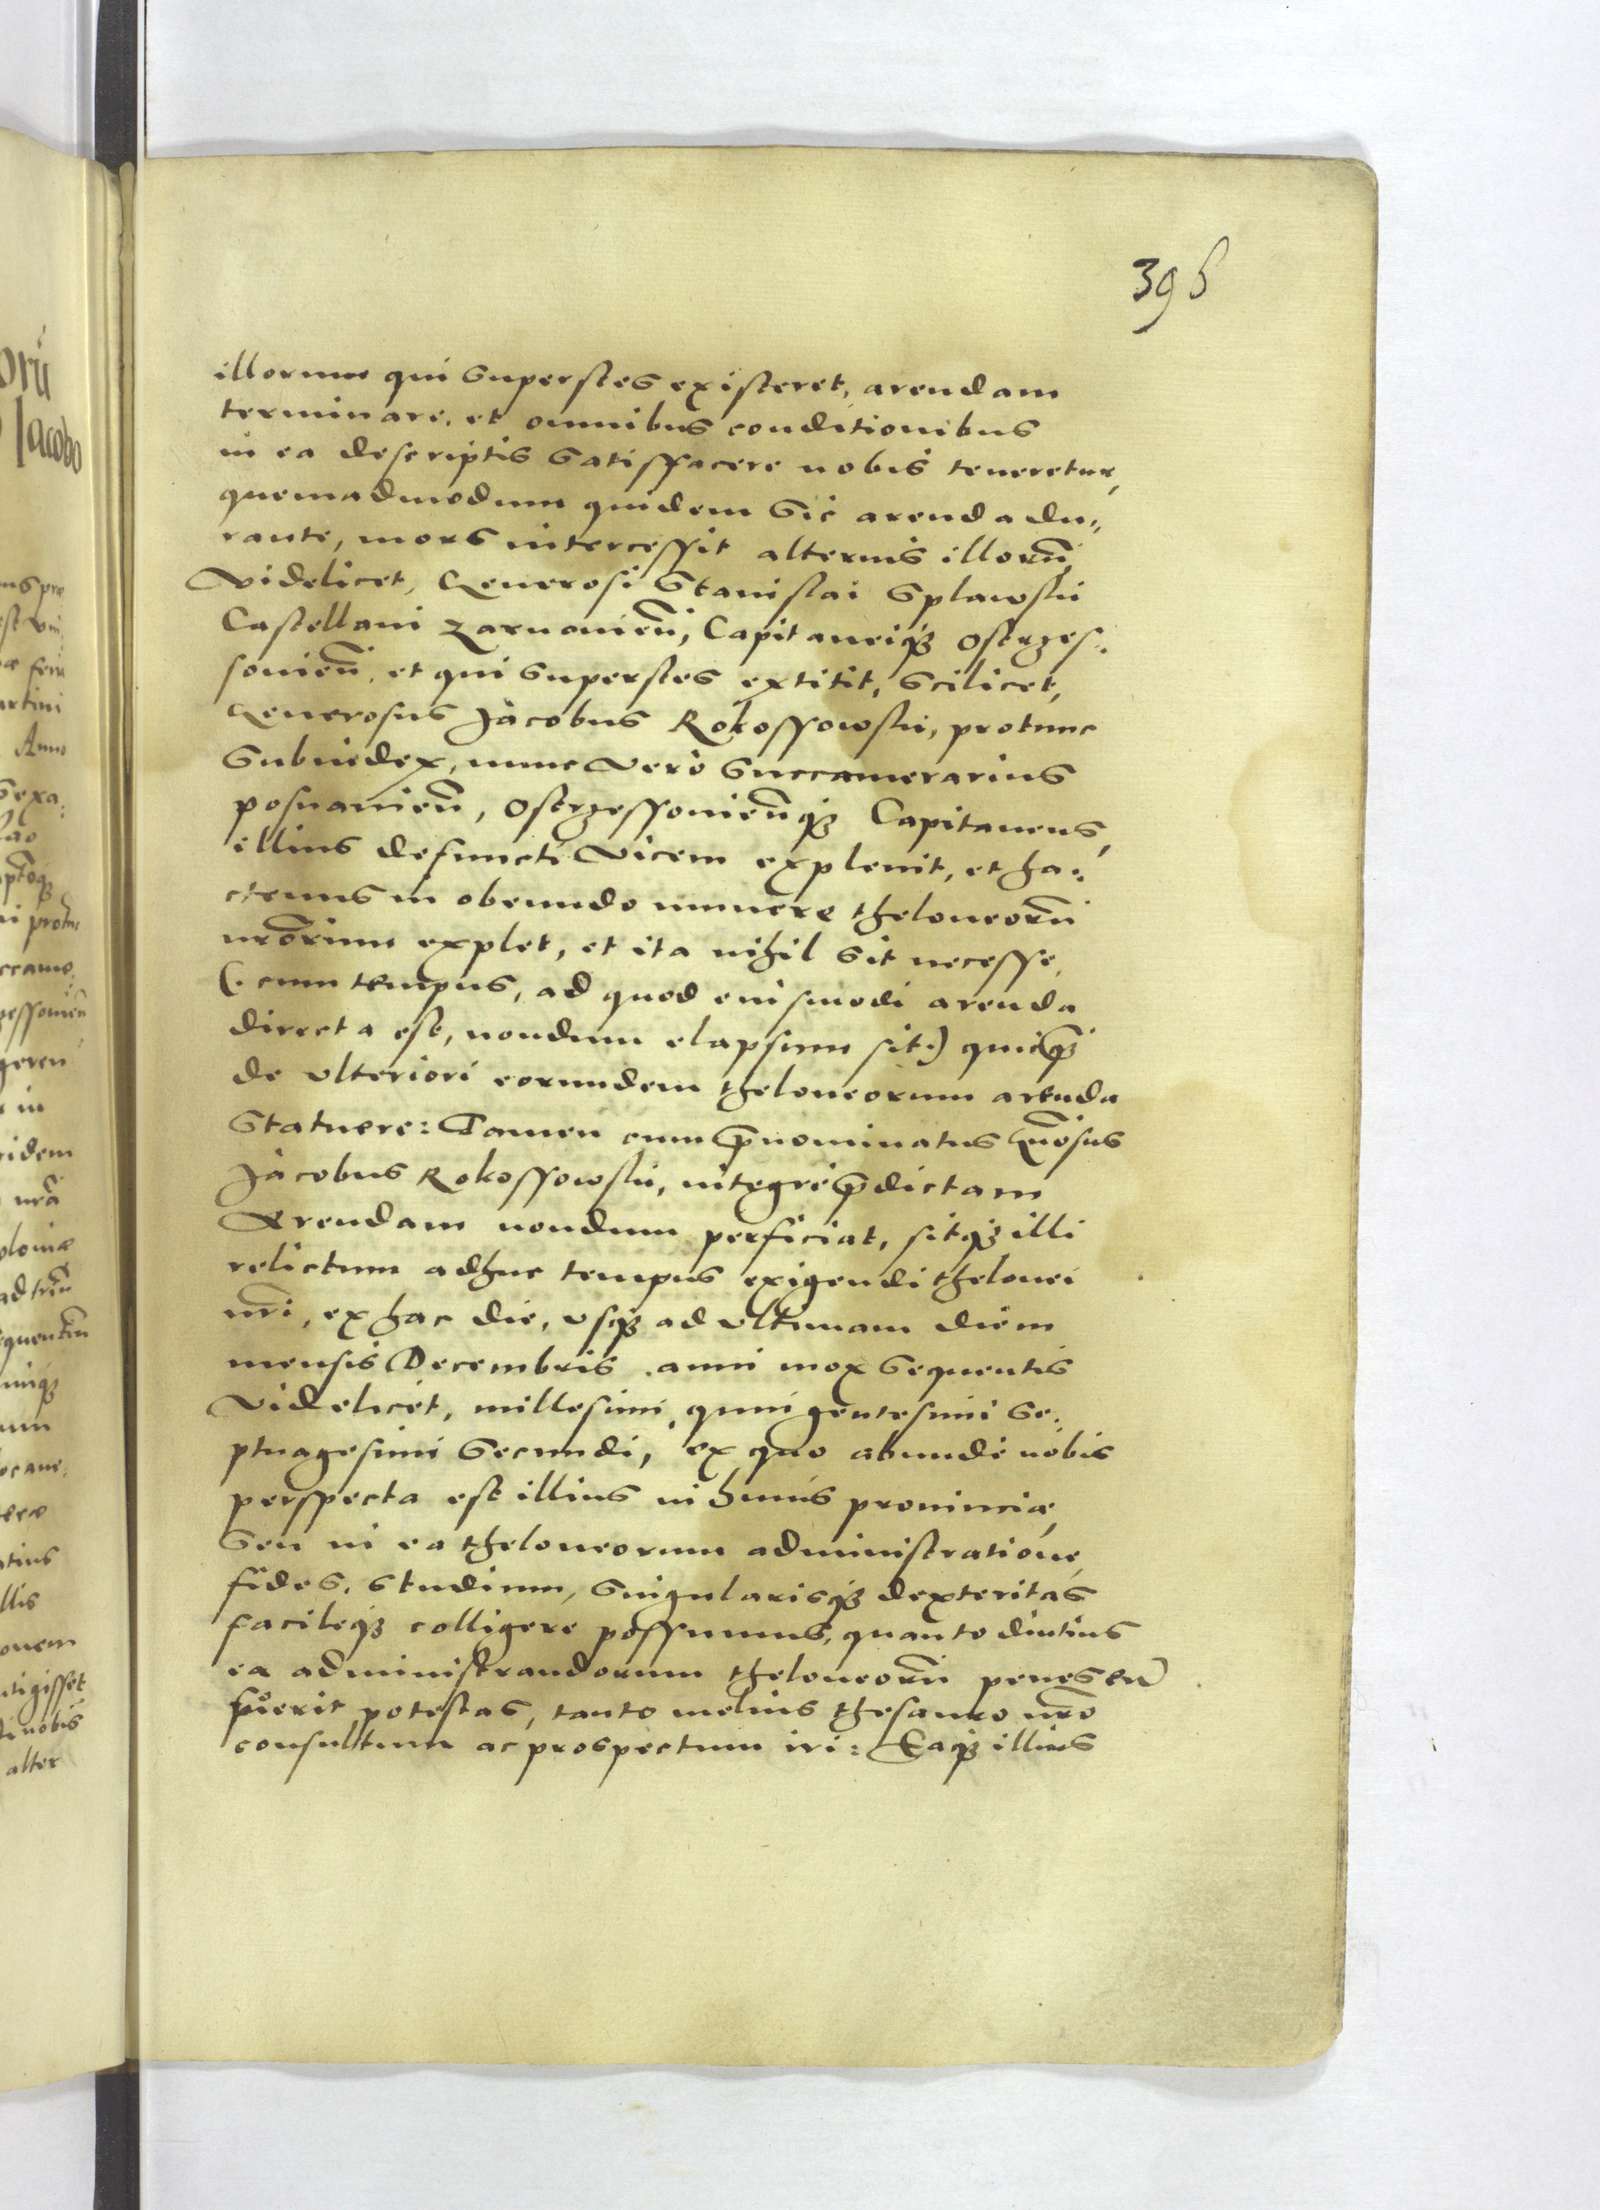 395
illorum qui superstes existeret, arendam
terminare, et omnibus conditionibus
in ea descriptis satisfacere nobis teneretur,
quemadmodum quidem sic arenda du„
rante, mors intercessit alterius illorũ,
Videlicet, Generosi Stanislai Splawski
Castellani Zarnovieñ, Capitaneiq3 Ostrzes„
sovieñ, et qui superstes extitit, scilicet,
Generosus Jacobus Rokossowski, protunc
Subiudex, nunc Vero Succamerarius
posnanieñ, Ostrzessovieñq3 Capitaneus,
illius defuncti Vicem explevit, et ha„
ctenus in obeundo munere theloneorũ
nr̃orum explet, et ita nihil sit necesse,
(: cum tempus, ad quod eiusmodi arenda
directa est, nondum elapsum sit:) quicq̃3
de ulteriori eorundem theloneorum arenda
Statuere: Tamen cum p̃nominatus Gñosus
Jacobus Rokossowski, integrè p̃dictam
Arendam nondum perficiat, sitq3 illi
relictum adhuc tempus exigendi thelonei
nr̃i, ex hac die, usq3 ad ultimam diem
mensis Decembris anni mox sequentis
Videlicet, millesimi quingentesimi se„
ptuagesimi secundi, ex quo abundè nobis
perspecta est illius in huius provinciæ,
seu in ea theloneorum administratione,
fides, studium, singularisq3 dexteritas
facileq3 colligere possumus, quanto diutius
ea administrandorum theloneorũ penes eũ
fuerit potestas, tanto melius thesauro nr̃o
consultum ac prospectum iri: Eaq3 illius
orũ
Jacobo
Anno
in
idem
nr̃a
llis
nobis
alter